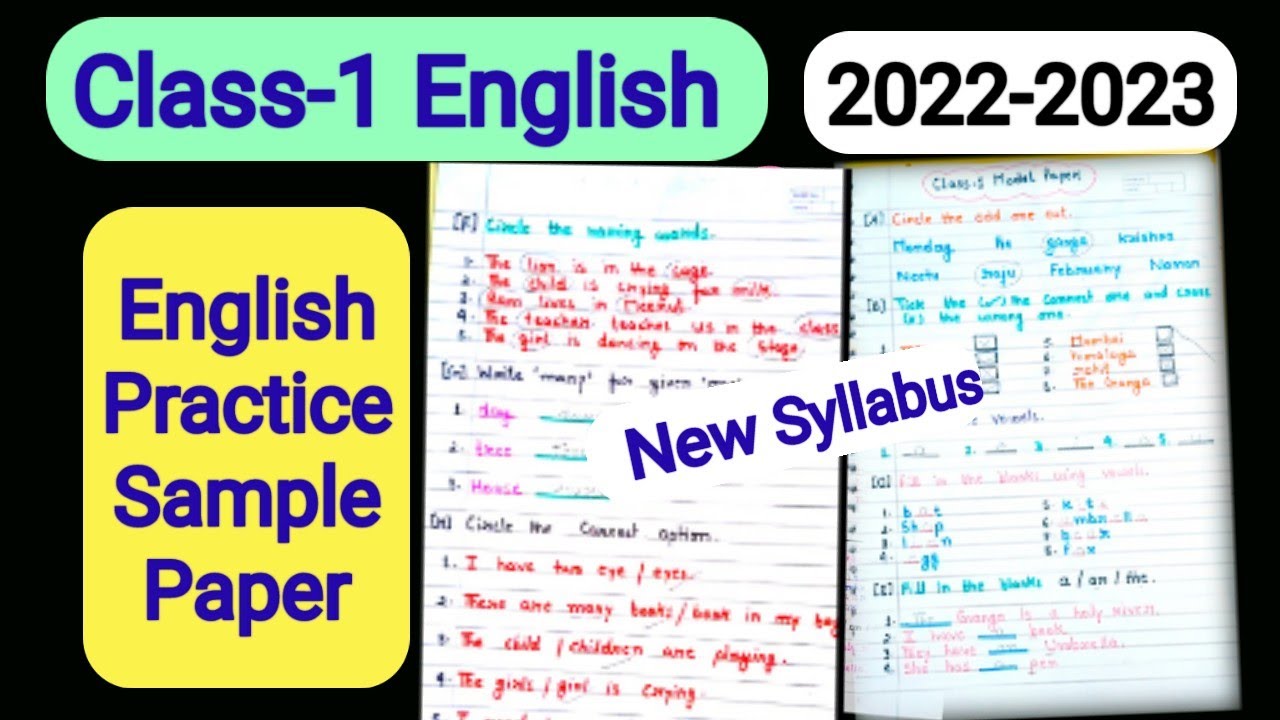 Class-1 English
2022-2023
English
Practice
Sample
Paper
New Syllabus
[F] Circle the naming words.
1. The lion is in the cage.
2. The child is crying for milk.
3. Ram lives in Meerut.
4. The teacher teaches us in the class
5. The girl is dancing on the stage.
Write 'many' for given
1. day
2. tree
3. House
[H] Circle the correct option.
1. I have two eye / eyes.
2. There are many books / book in my bag
3. The child / children are playing.
4. The girls / girl is crying.
Class-1 Model Paper
[A] Circle the odd one out.
Monday He Ganga Krishna
Neeta Raju February Naman
[B] Tick the (✓) the correct one and cross
(x) the wrong one.
5. Mumbai
6. Himalaya
8. The Ganga
vowels.
1. 2. 3. 4. 5.
[D] Fill in the blanks using vowels.
1. b_a_t
2. Sh_o_p
4. _ _gg
8. f_o_x
[E] Fill in the blanks a / an / the.
1. The Ganga is a holy river.
2. I have a book.
3. They have an Umbrella.
4. She has a pen